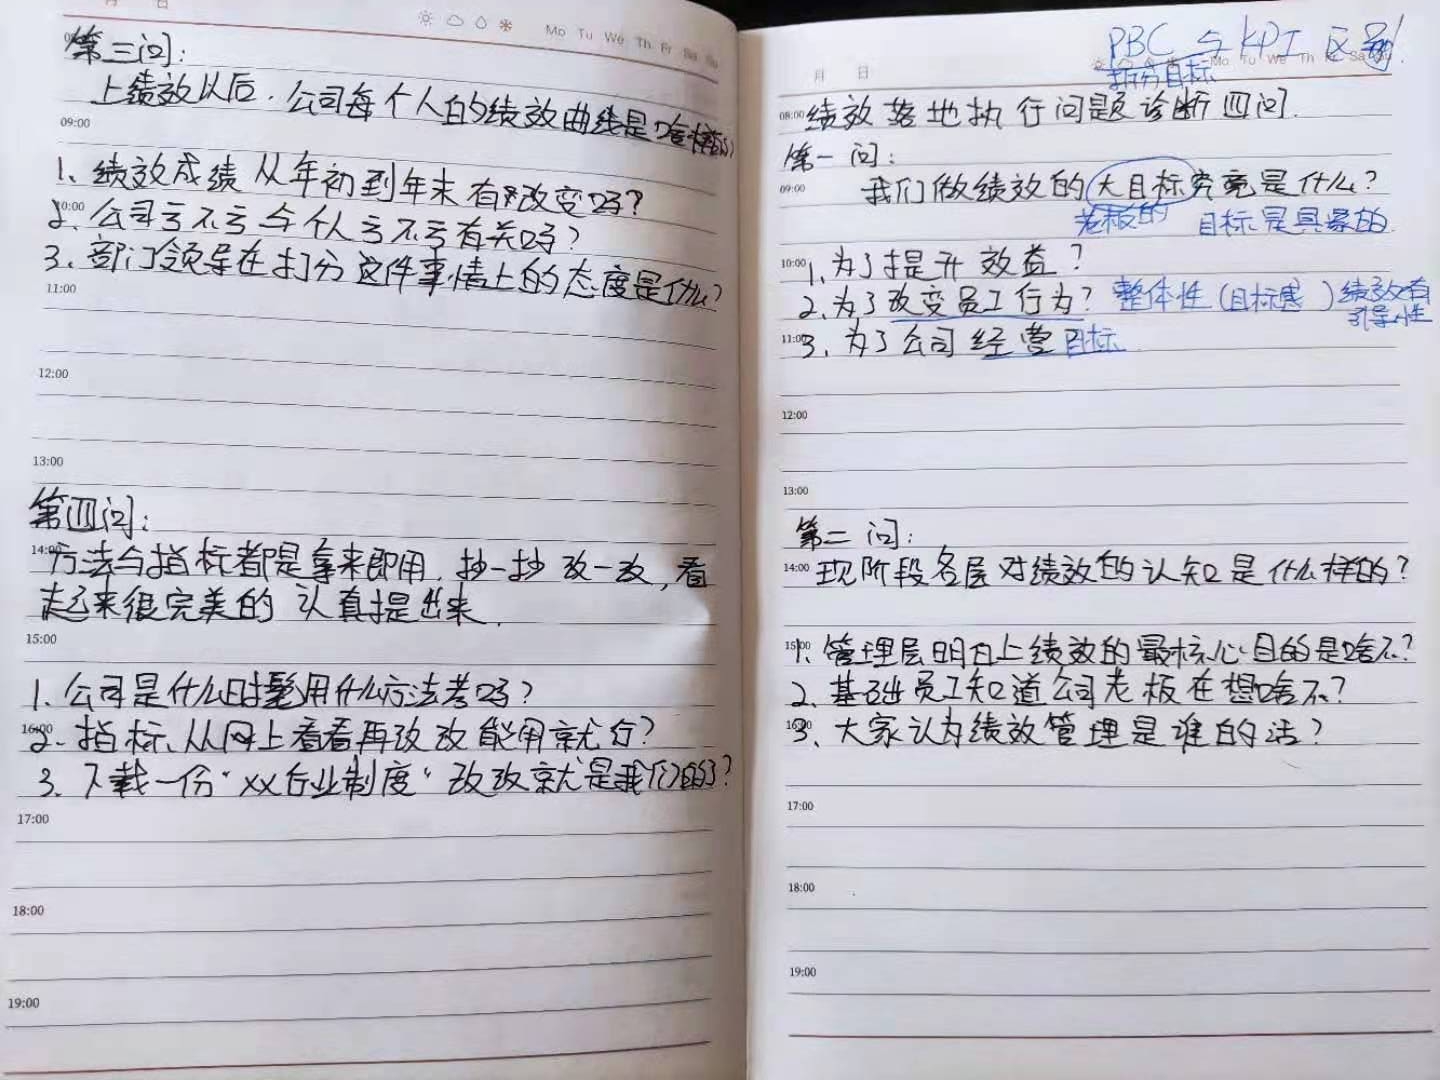 月 日
Mo Tu We Th Fr Sa Su
第三问:
上绩效以后，公司每个人的绩效曲线是啥样的?
09:00
1、绩效成绩从年初到年末有改变吗?
10:00
2、公司亏不亏与个人亏不亏有关吗?
3、部门领导在打分这件事情上的态度是什么?
11:00
12:00
13:00
第四问:
14:00
方法与指标都是拿来即用，抄一抄改一改，看
起来很完美的认真提出来.
15:00
1、公司是什么时髦用什么方法考吗?
16:00
2、指标、从网上看看再改改能用就行?
3、下载一份“XX行业制度”改改就是我们的了?
17:00
18:00
19:00
PBC与KPI区别
月 日
Mo Tu We Th Fr Sa Su
拆分目标
08:00
绩效落地执行问题诊断四问.
第一问:
09:00
我们做绩效的大目标究竟是什么?
老板的 目标是具象的
10:00
1、为了提升效益?
2、为了改变员工行为? 整体性(目标感) 绩效有
引导性
11:00
3、为了公司经营目标
12:00
13:00
第二问:
14:00
现阶段各层对绩效的认知是什么样的?
15:00
1、管理层明白上绩效的最核心目的是啥不?
2、基础员工知道公司老板在想啥不?
16:00
3、大家认为绩效管理是谁的活?
17:00
18:00
19:00